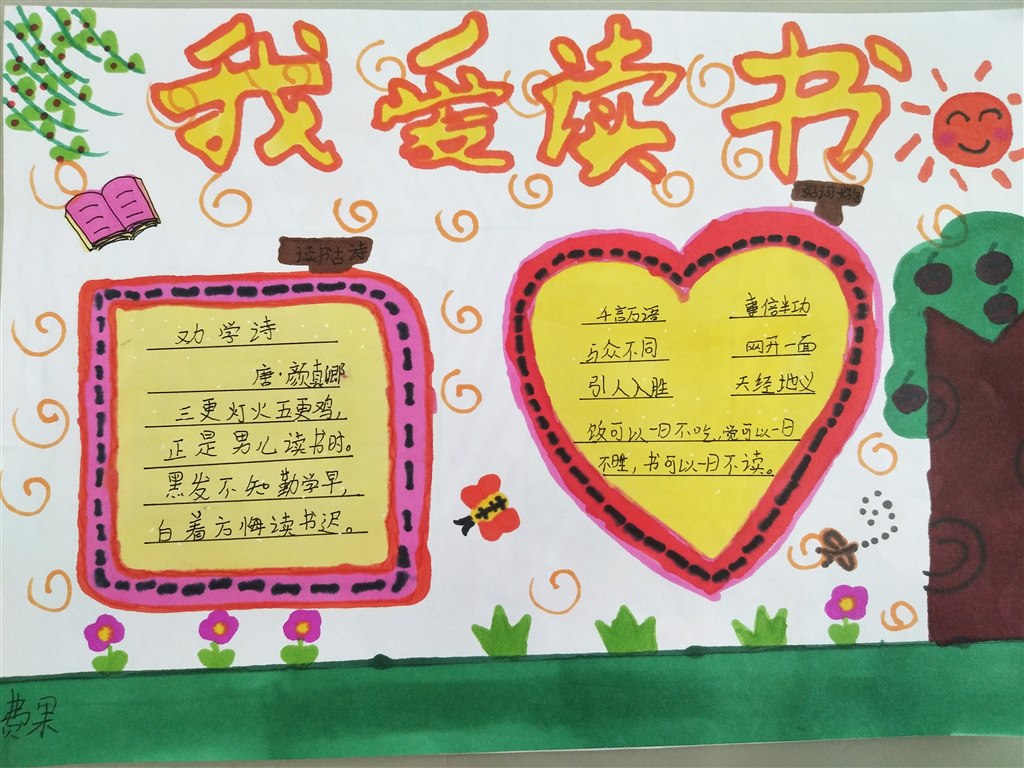 我爱读书
读书古诗
劝学诗
唐·颜真卿
三更灯火五更鸡,
正是男儿读书时。
黑发不知勤学早,
白着方悔读书迟。
好词好句
千言万语
事倍半功
与众不同
网开一面
引人入胜
天经地义
饭可以一日不吃,觉可以一日
不睡,书可以一日不读。
费果